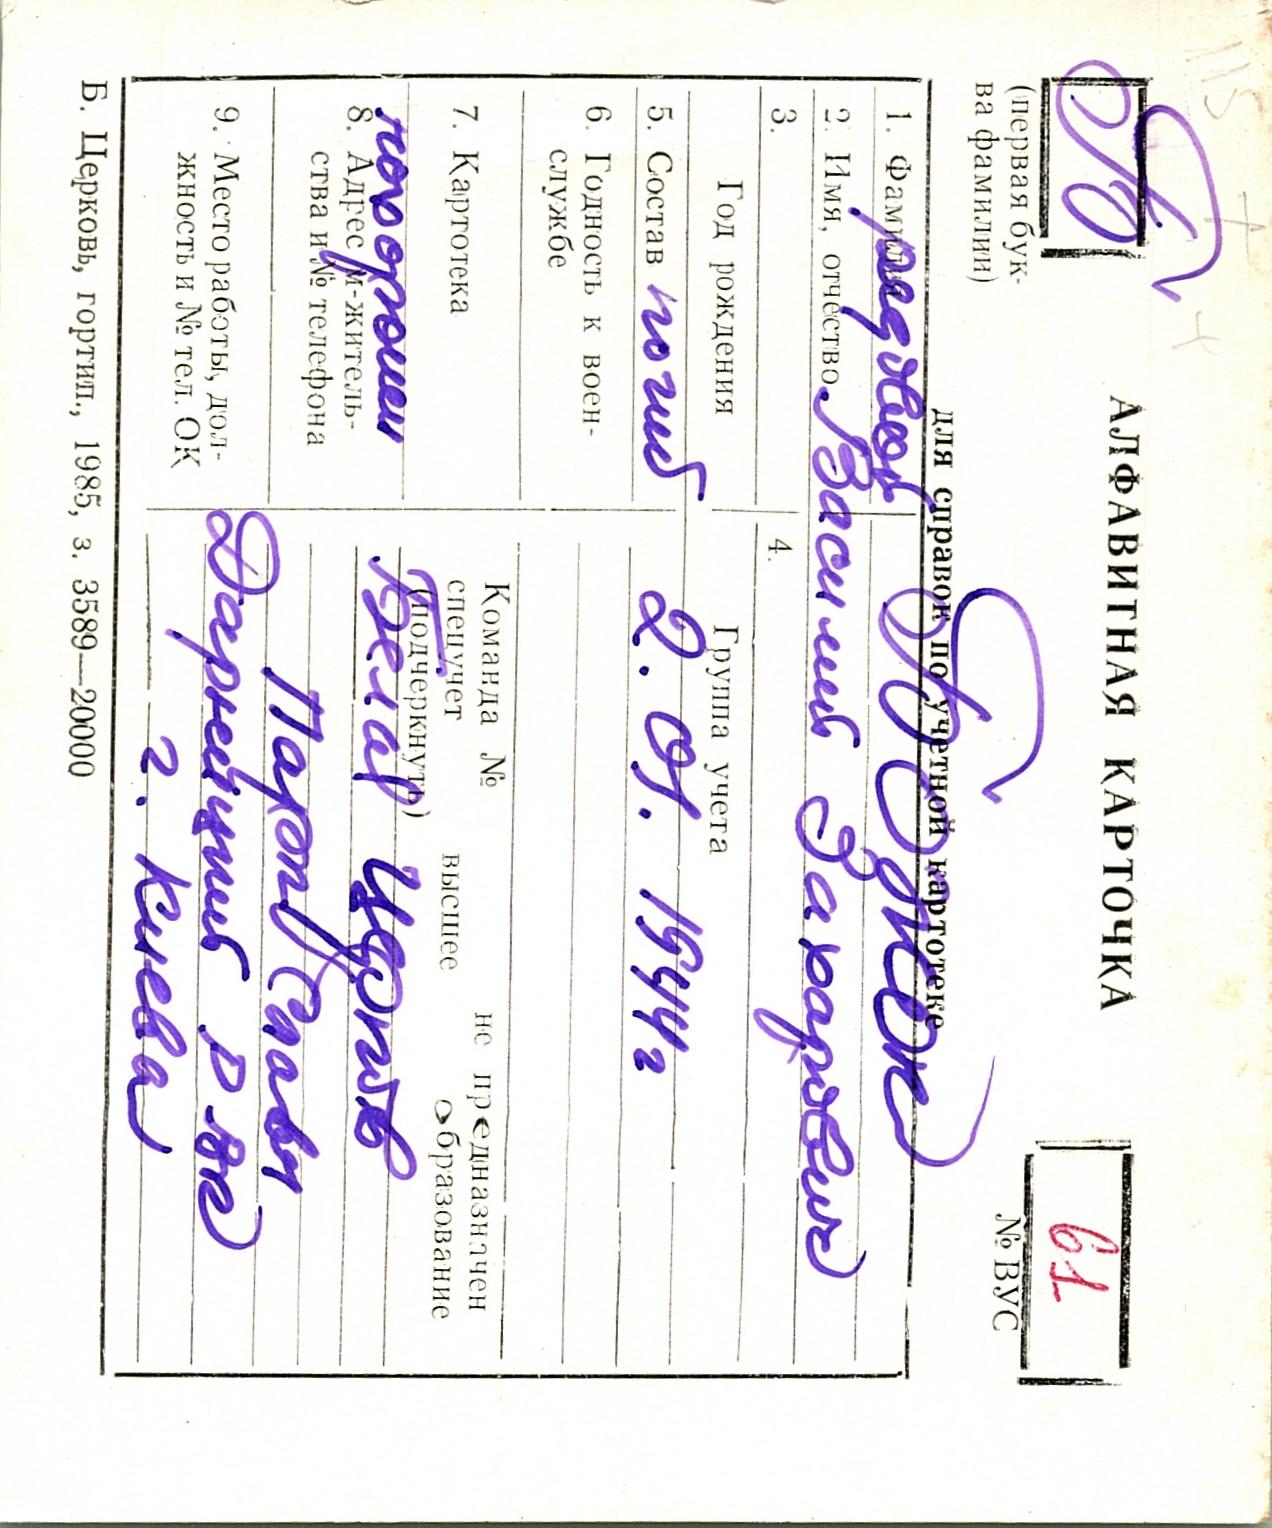 Б
(первая бук-
ва фамилии)
АЛФАВИТНАЯ КАРТОЧКА
для справок по учетной картотеке
61
№ ВУС
1. Фамилия
рядовой
2. Имя, отчество Василий Захарович
3.
Год рождения
4.
Группа учета
5. Состав погиб 2. 01. 1944г
6. Годность к воен-
службе
7. Картотека
Команда № не предназначен
спецучет высшее образование
(подчеркнуть)
похоронен Белая Церковь
8. Адрес м-житель-
ства и № телефона
9. Место работы, дол-
жность и № тел. ОК
Дарницкий РВК
г. Киева
Б. Церковь, гортип., 1985, з. 3589—20000